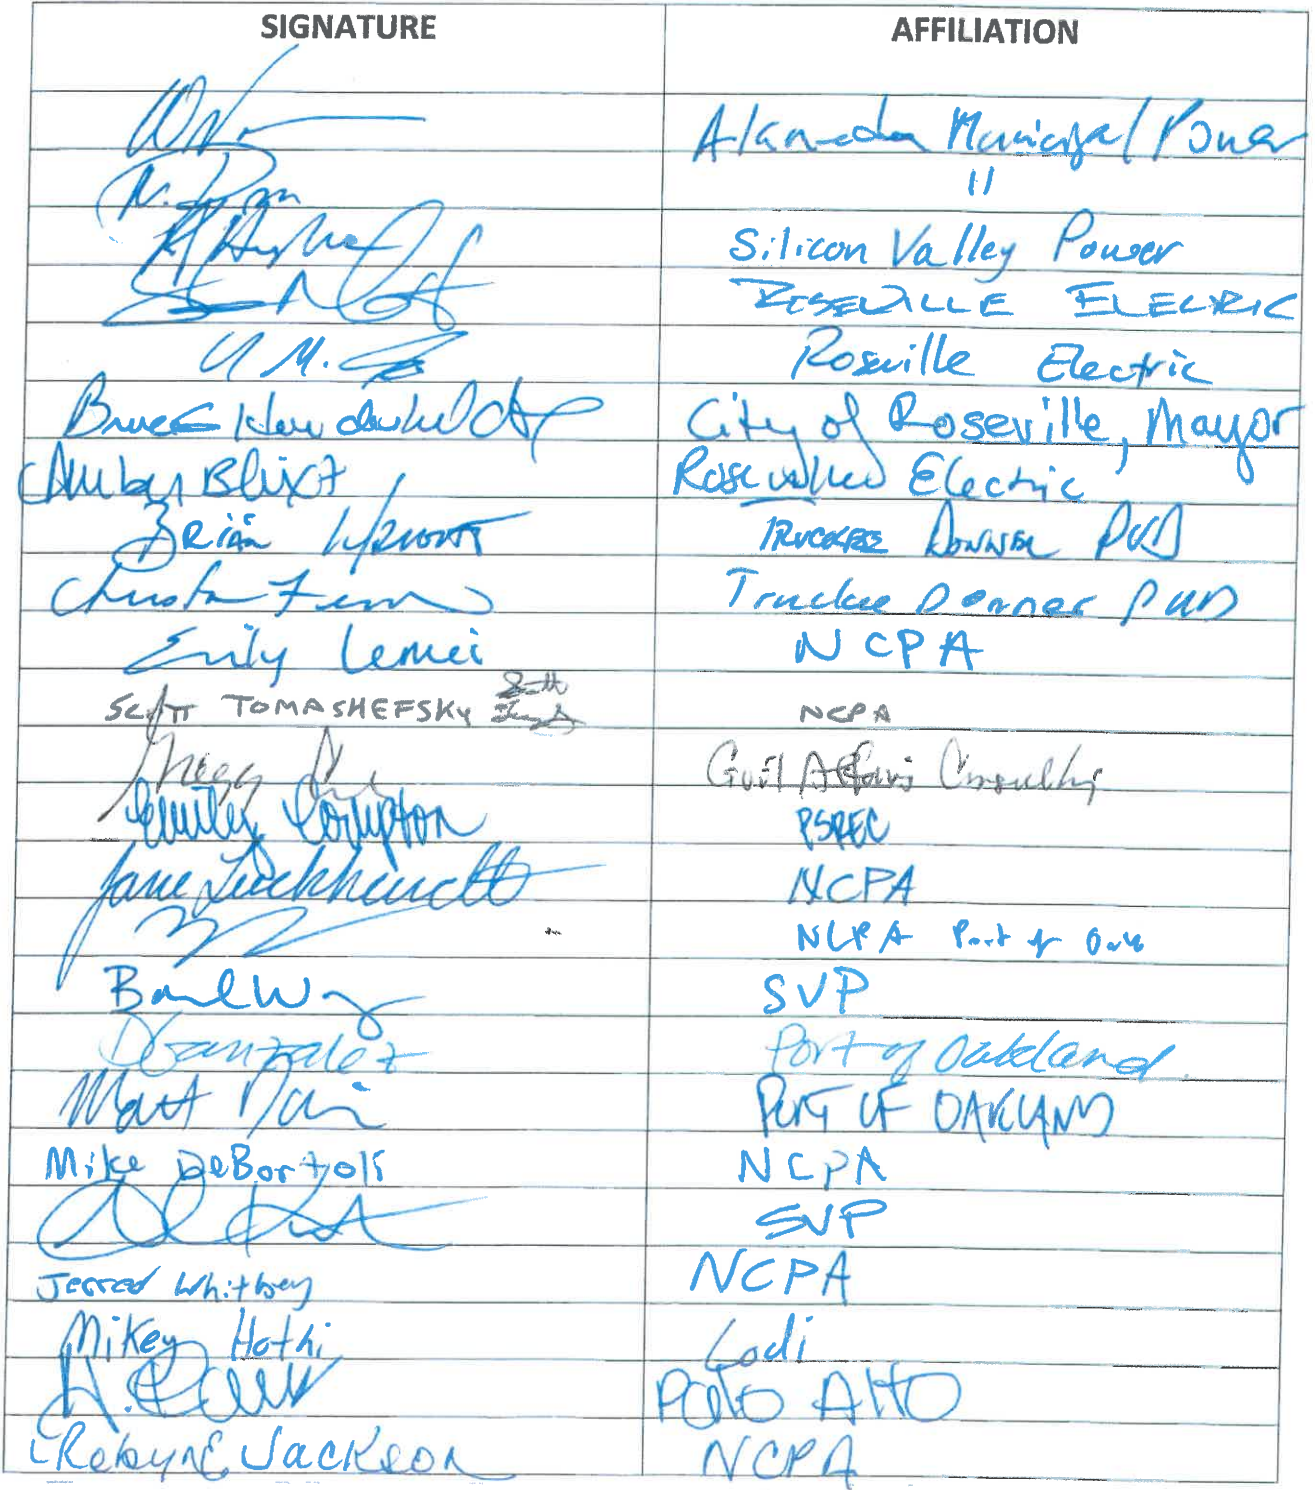 SIGNATURE AFFILIATION
Alameda Municipal Power
N. "
Silicon Valley Power
ROSEVILLE ELECRIC
M. Roseville Electric
Bruce City of Roseville, Mayor
Amber Blixt Roseville Electric
Brian TRUCKEE DONNER PUD
Truckee Donner PUD
Emily Lemei NCPA
SCOTT TOMASHEFSKY NCPA
Gov'l Affairs Consulting
Emily Compton PSREC
Jane Luckhardt NCPA
NCPA Port of Oak
SVP
DGonzalez Port of Oakland
Matt PORT OF OAKLAND
Mike DeBortoli NCPA
SVP
Jerred Whitbey NCPA
Mikey Hothi Lodi
A. PALO ALTO
Robyne Jackson NCPA